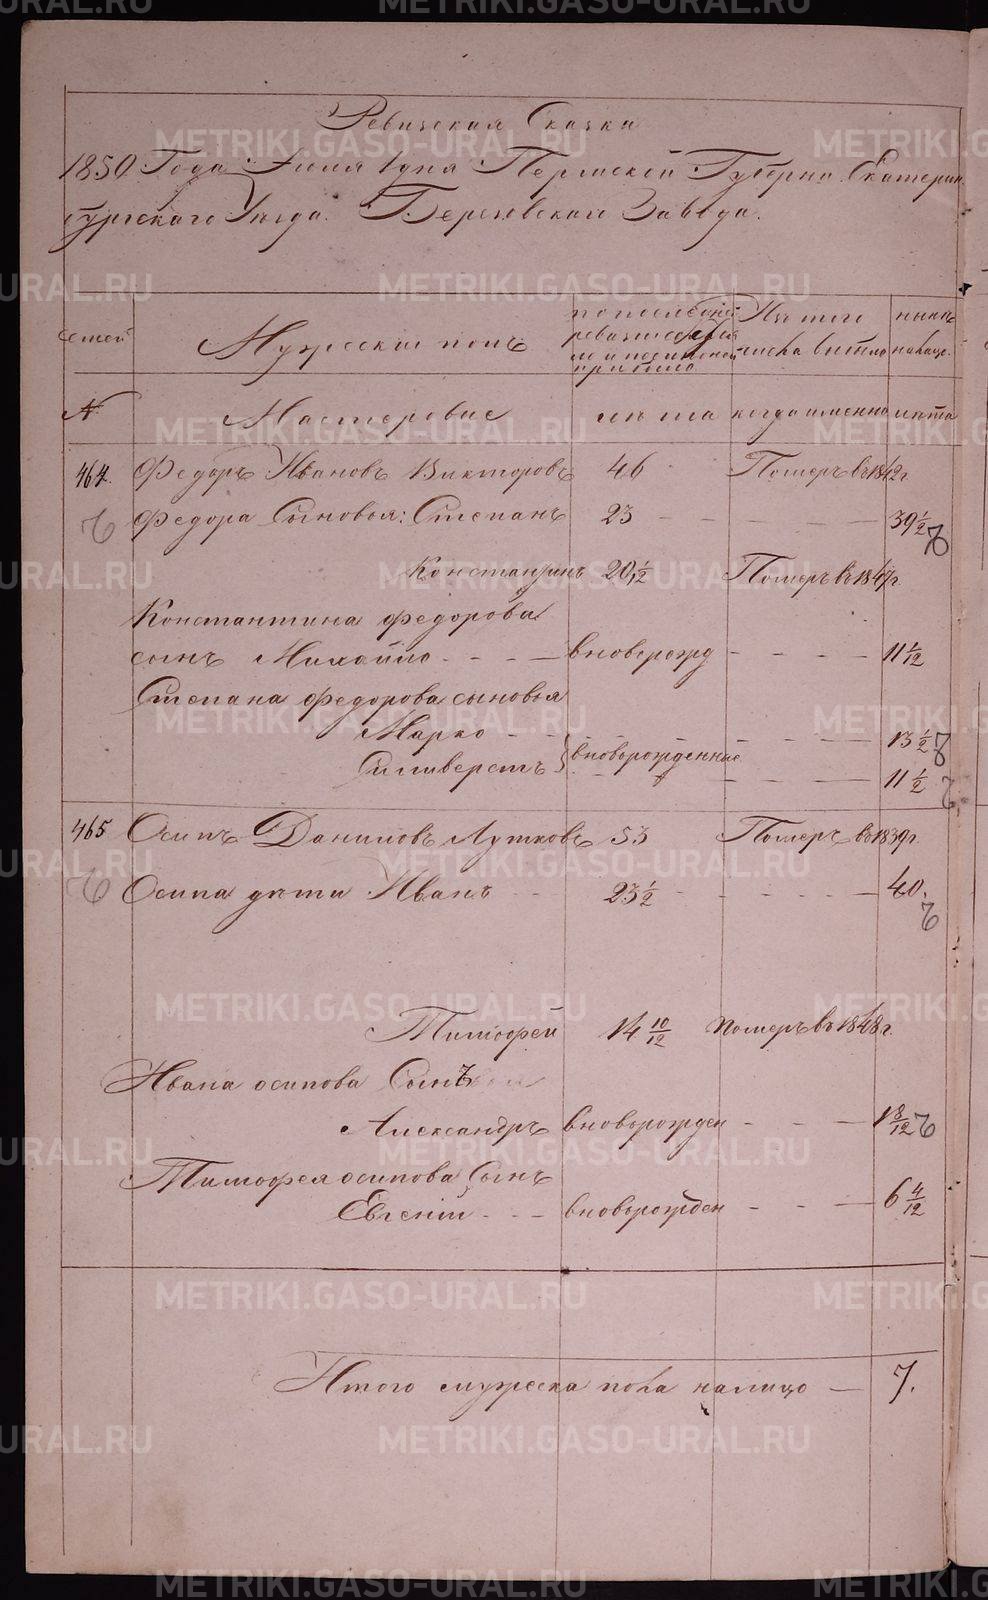 Ревизская Сказка
1850 Года Июля 1 дня Пермской Губернiи Екатерин
бургскаго Уезда. Березовскаго Завода.
Семей
Мужеский полъ
по последней ревизiи состояло и после оной прибыло
Изъ того числа выбыло
ныне на лицо
№
Мастеровые
лета
когда именно
лета
464. Федоръ Ивановъ Викторовъ 46 Померъ въ 1842 г.
Федора Сыновья: Степанъ 23 - - - - - - 39 1/2
Константинъ 20 1/12 Померъ въ 1847 г.
Константина Федорова
сынъ Михайло - - - - вноворожд - - - - 11 1/12
Степана Федорова сыновья
Марко - - - - - - 13 1/2
Силиверстъ } вноворожденные - - - - 11 1/2
465 Осипъ Даниловъ Лутковъ 53 Померъ въ 1839 г.
Осипа дети Иванъ - - 23 1/2 - - - - - 40.
Тимофей 14 10/12 Померъ въ 1848 г.
Ивана Осипова Сынъ
Александръ вноворожден - - - 1 8/12
Тимофея Осипова Сынъ
Евгенiй - - - вноворожден - - - 6 4/12
Итого мужеска пола налицо — 7.
METRIKI.GASO-URAL.RU